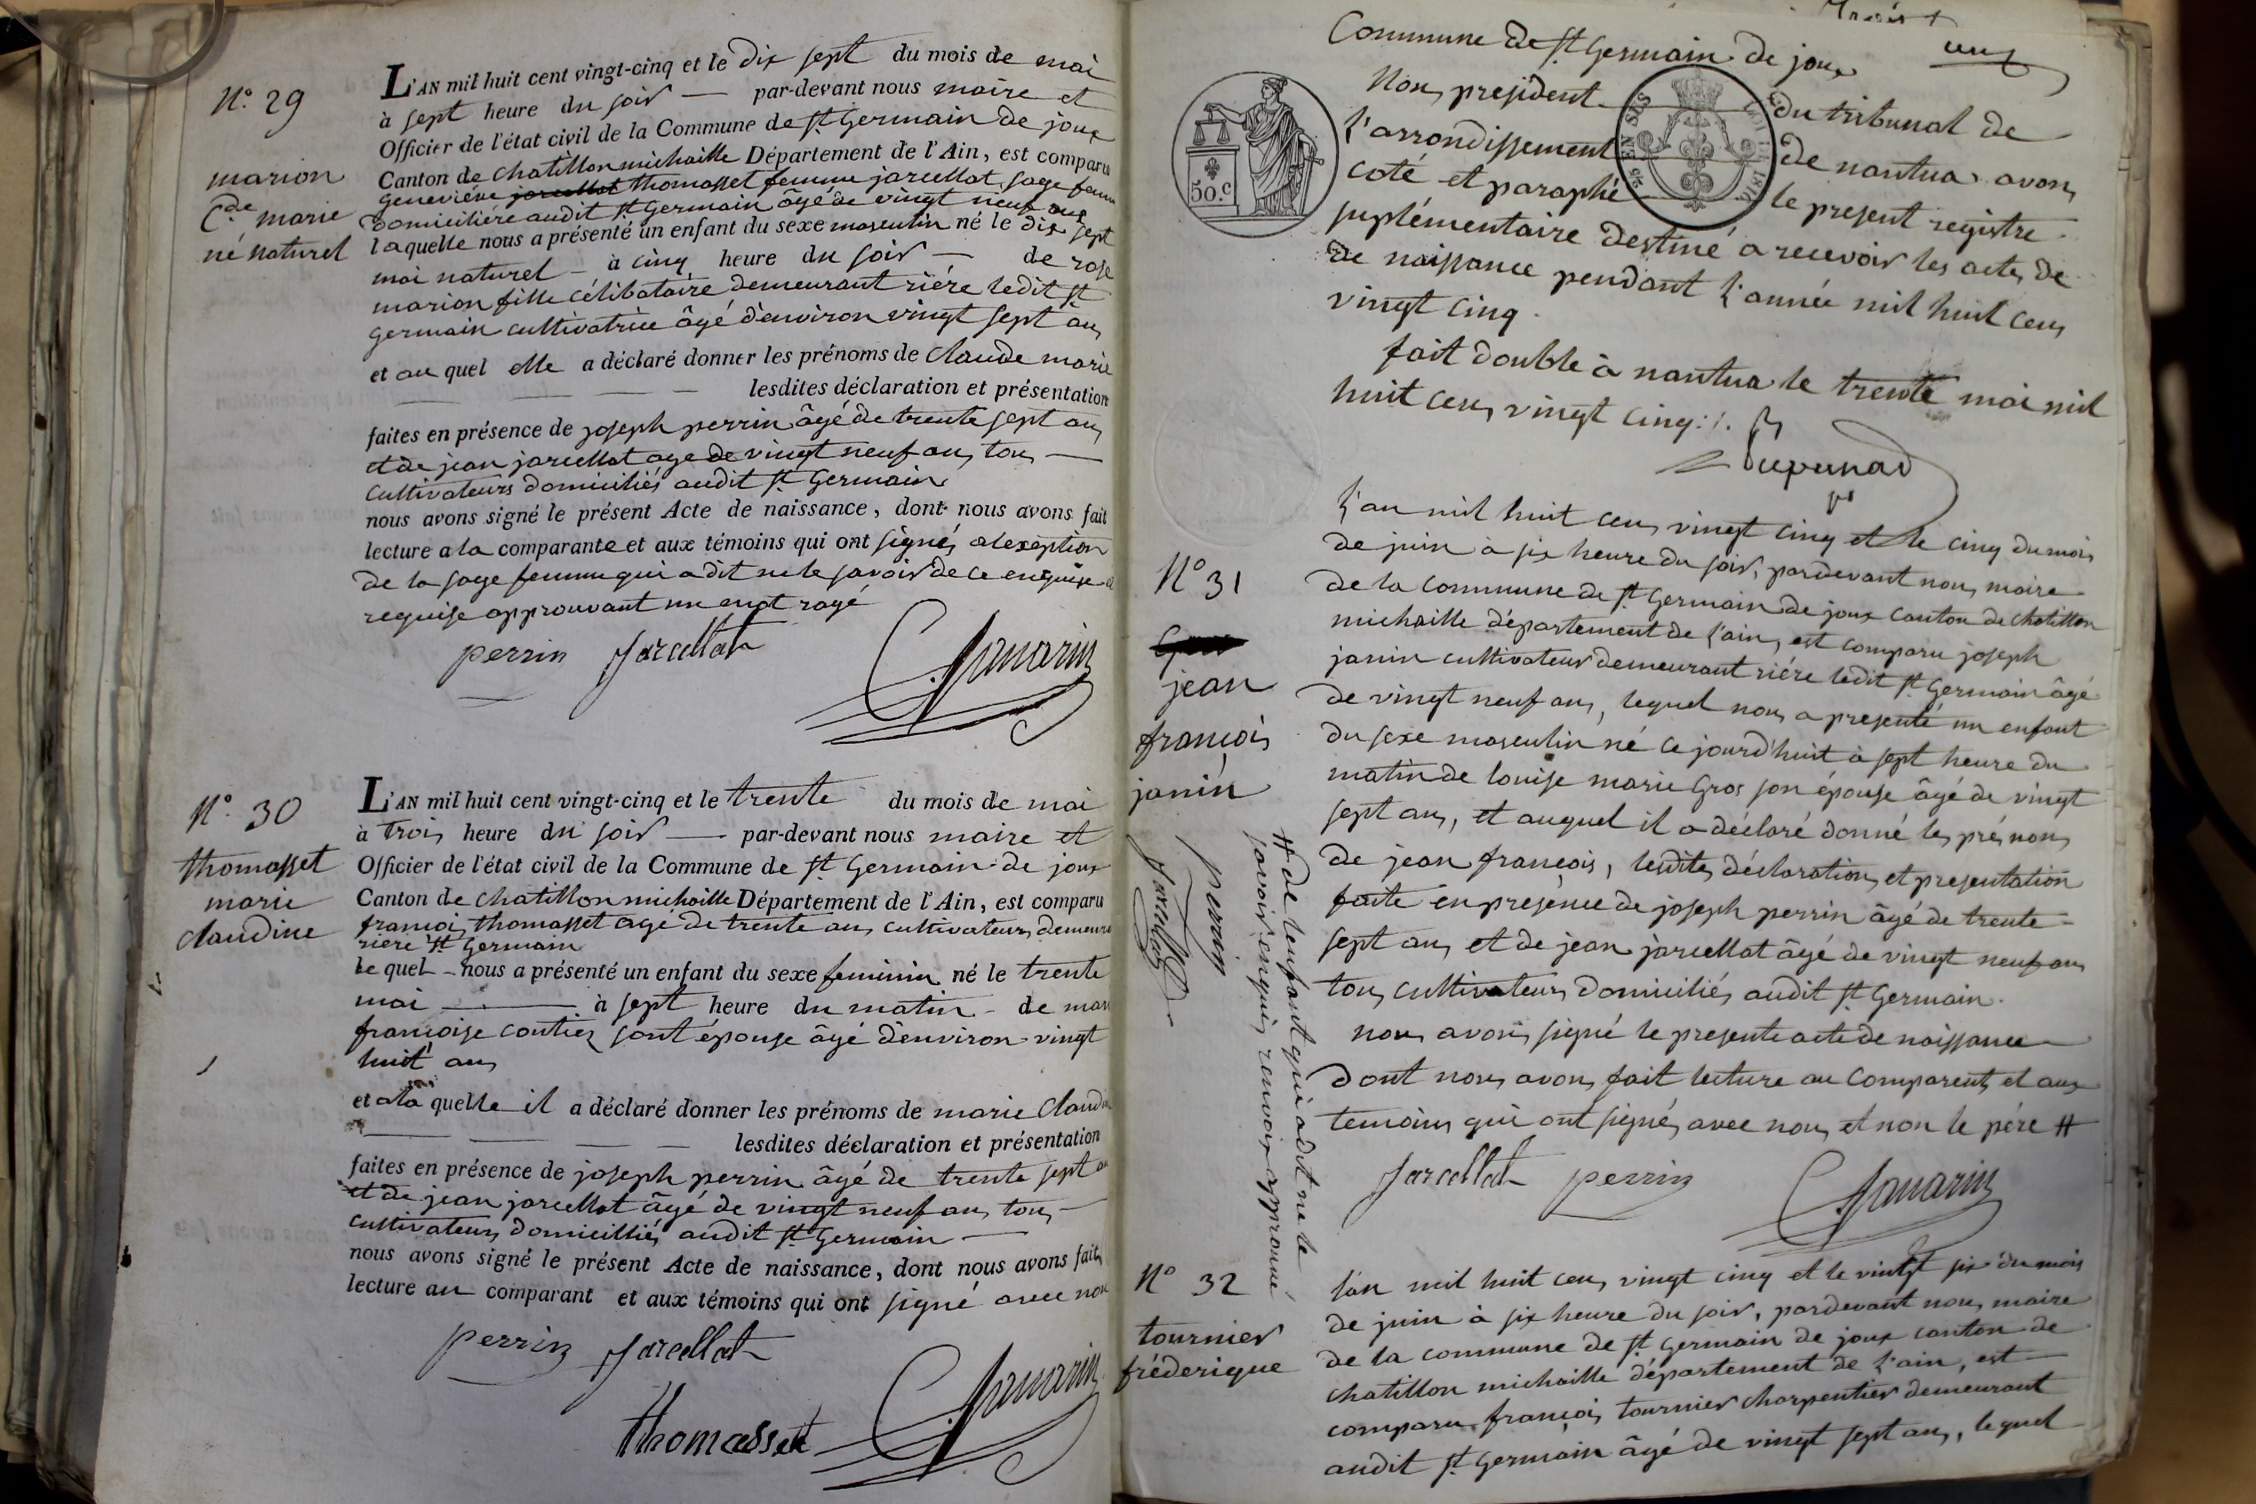 N° 29
marion
Cde marie
né naturel
L'AN mil huit cent vingt-cinq et le dix sept du mois de mai
à sept heure du soir — par-devant nous maire et
Officier de l'état civil de la Commune de St Germain de joux
Canton de chatillon michaille Département de l'Ain, est comparu
geneviéve jarcellat thomasset femme jarcellat, sage femme
domiciliére audit St Germain âgé de vingt neuf ans
laquelle nous a présenté un enfant du sexe masculin né le dix sept
mai naturel — à cinq heure du soir — de rose
marion fille célibataire demeurant riére ledit St
germain cultivatrice âgé d'environ vingt sept ans
et au quel elle a déclaré donner les prénoms de claude marie
lesdites déclaration et présentation
faites en présence de joseph perrin âgé de trente sept ans
et de jean jarcellat age de vingt neuf ans, tous —
cultivateurs domiciliés audit St Germain
nous avons signé le présent Acte de naissance, dont nous avons fait
lecture a la comparante et aux témoins qui ont signés, alexeption
de la sage femme qui a dit ne le savoir de ce enquise et
requise approuvant un mot rayé
perrin jarcellat
N° 30
thomasset
marie
claudine
L'AN mil huit cent vingt-cinq et le trente du mois de mai
à trois heure du soir — par-devant nous maire et
Officier de l'état civil de la Commune de St Germain de joux
Canton de chatillon michaille Département de l'Ain, est comparu
françois thomasset agé de trente ans cultivateurs demeura
riére St Germain
le quel — nous a présenté un enfant du sexe feminin né le trente
mai — à sept heure du matin — de mari
françoise coutiez sont épouse âgé d'environ vingt
huit ans
et ala quelle il a déclaré donner les prénoms de marie Claudi
lesdites déclaration et présentation
faites en présence de joseph perrin âgé de trente sept an
et de jean jarcellat âgé de vingt neuf ans, tous —
cultivateurs, domicilliés audit St Germain —
nous avons signé le présent Acte de naissance, dont nous avons fait
lecture au comparant et aux témoins qui ont signé avec nou
perrin jarcellat
thomasset
Commune de St Germain de joux
Nous president du tribunal de
l'arrondissement de nantua avons
coté et paraphé le present registre
suplémentaire destiné a recevoir les actes de
de naissance pendant l'année mil huit cens
vingt cinq.
50.c
EN SUS
fait double à nantua le trente mai mil
huit cens vingt cinq ./.
N° 31
jean
françois
janin
l'an mil huit cens vingt cinq et le cinq du mois
de juin à six heure du soir, pardevant nous maire
de la commune de St Germain de joux canton de chatillon
michaille département de l'ain, est comparu joseph
janin cultivateur demeurant riére ledit St Germain âgé
de vingt neuf ans, lequel nous a presenté un enfant
du sexe masculin né ce jourd'huit à sept heure du
matin de louise marie Gros son épouse âgé de vingt
sept ans, et auquel il a déclaré donné les prénons
de jean françois, lesdites déclarations et presentation
faite en presénce de joseph perrin âgé de trente
sept ans et de jean jarcellat âgé de vingt neuf ans
tous cultivateurs domiciliés audit St Germain.
nous avons signé le presente acte de naissance
dont nous avons fait lecture au Comparent et aux
temoins qui ont signés avec nous et non le pére #
# de l'enfant qui a dit ne le
savoir enquis, renvoix approuvé
perrin
jarcellat
jarcellat perrin
N° 32
tournier
fréderique
l'an mil huit cens vingt cinq et le vintgt six du mois
de juin à six heure du soir, pardevant nous maire
de la commune de St Germain de joux canton de
chatillon michaille département de l'ain, est —
comparu françois tournier charpentier demeurant
audit St Germain âgé de vingt sept ans, lequel